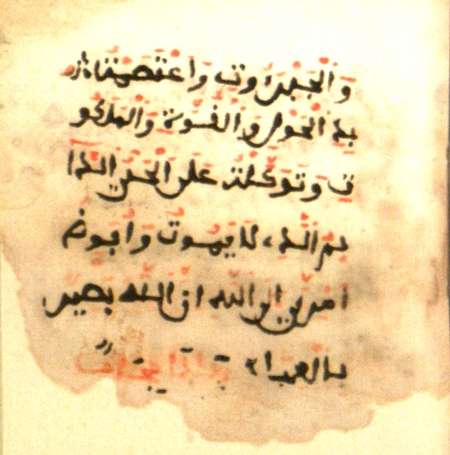 والجبروت واعتصمت
الحول والقوة والملكو
ت وتوكلت على الحي الدا
يم الذي لا يموت وافوض
امري الى الله ان الله بصير
بالعباد